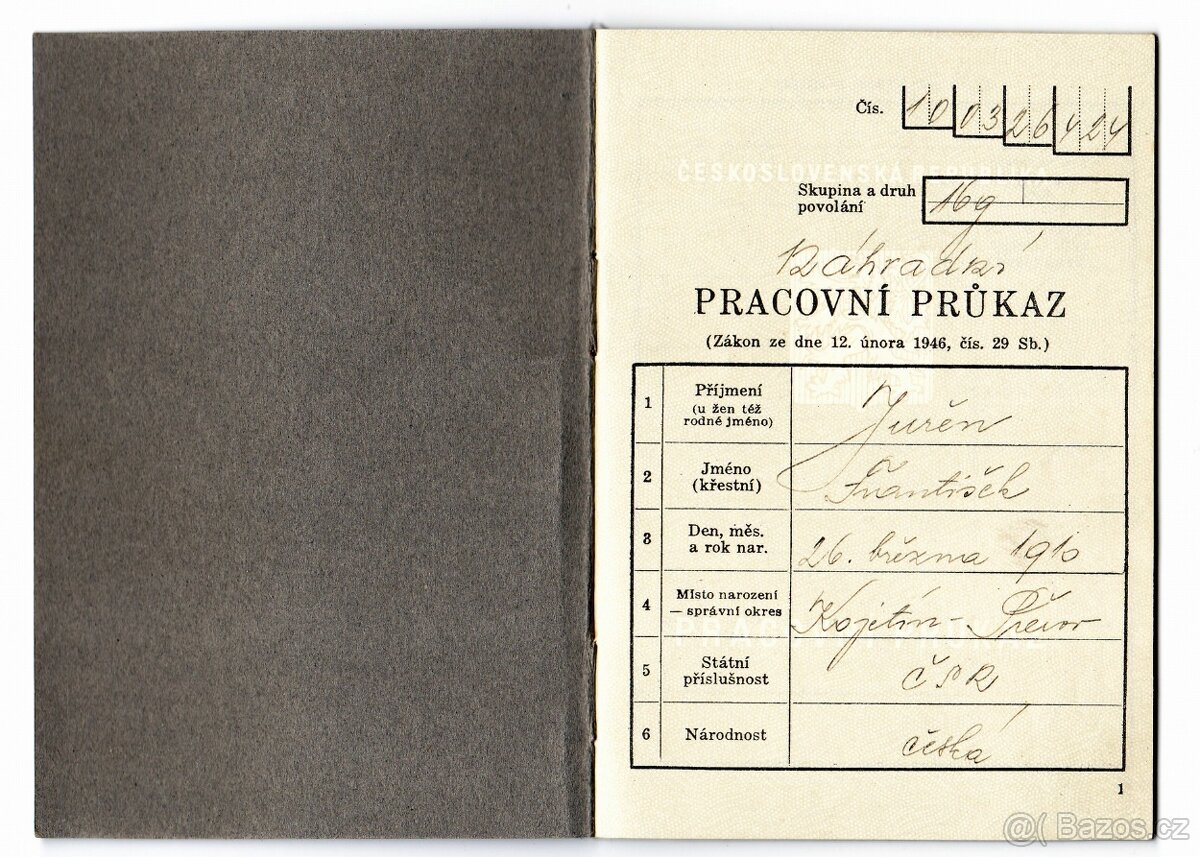 Čís. 10 03 26 424
ČESKOSLOVENSKÁ REPUBLIKA
Skupina a druh
povolání 16g
Náhradní
PRACOVNÍ PRŮKAZ
(Zákon ze dne 12. února 1946, čís. 29 Sb.)
1 Příjmení
(u žen též
rodné jméno) Juřen
2 Jméno
(křestní) František
3 Den, měs.
a rok nar. 26. března 1910
4 Místo narození
— správní okres Kojetín - Přerov
PRACOVNÍ PRŮKAZ
5 Státní
příslušnost ČSR
6 Národnost česká
1
@( Bazos.cz